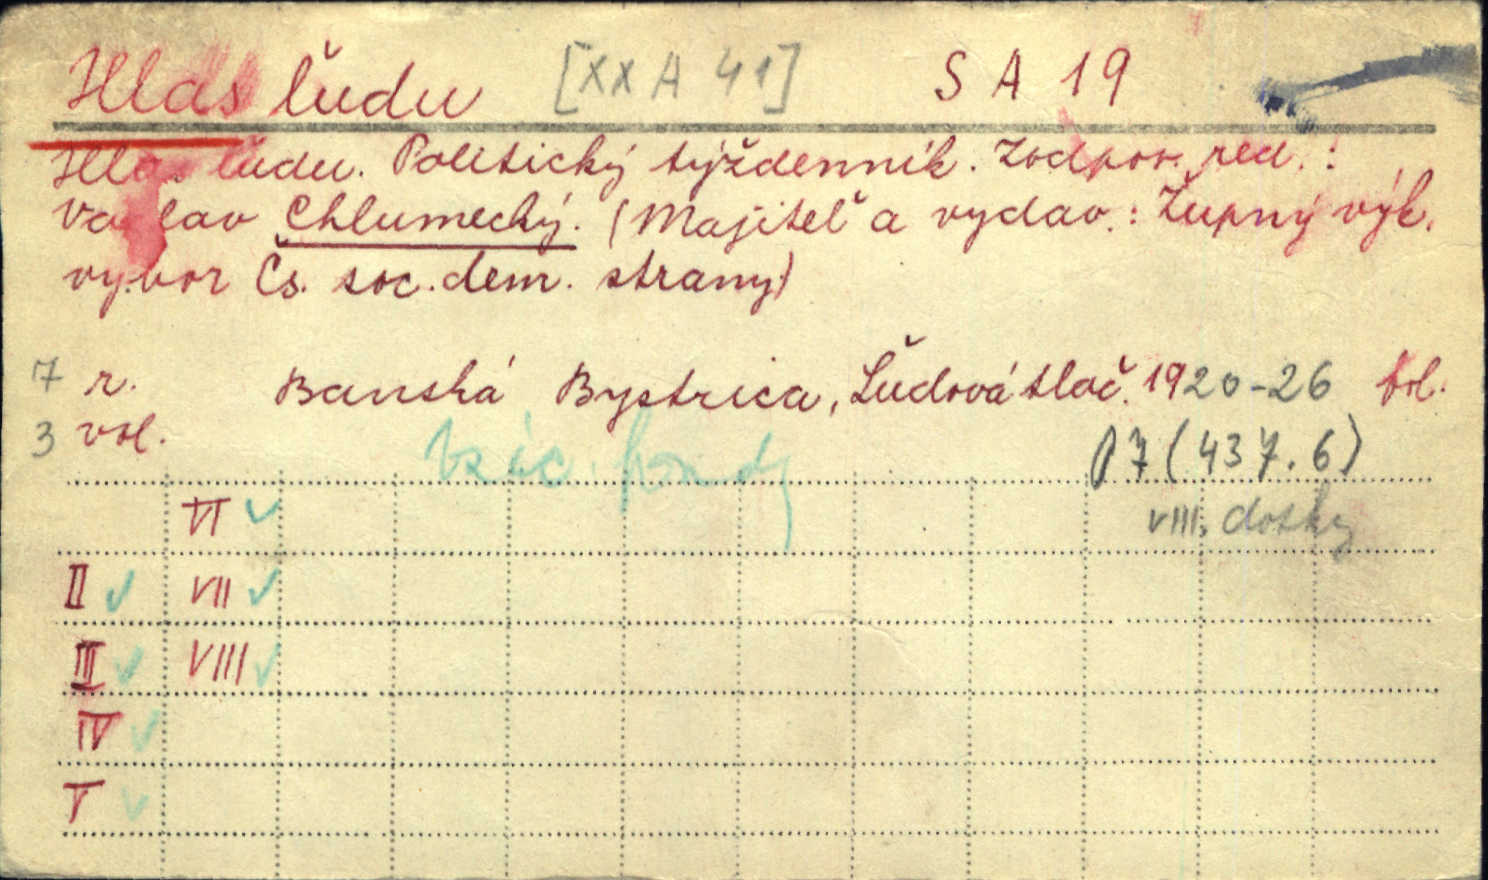 Hlas ľudu [XX A 41] S A 19
Hlas ľudu. Politický týždenník. Zodpov. red. :
Vaclav Chlumecký. (Majiteľ a vydav. : Župný výk.
vybor Čs. soc. dem. strany)
7 r. Banská Bystrica, Ľudová tlač. 1920-26 fol.
3 vol.
vzác. fondy
07(437.6)
VI ✓ VIII. dosky
II ✓ VII ✓
III ✓ VIII ✓
IV ✓
V ✓